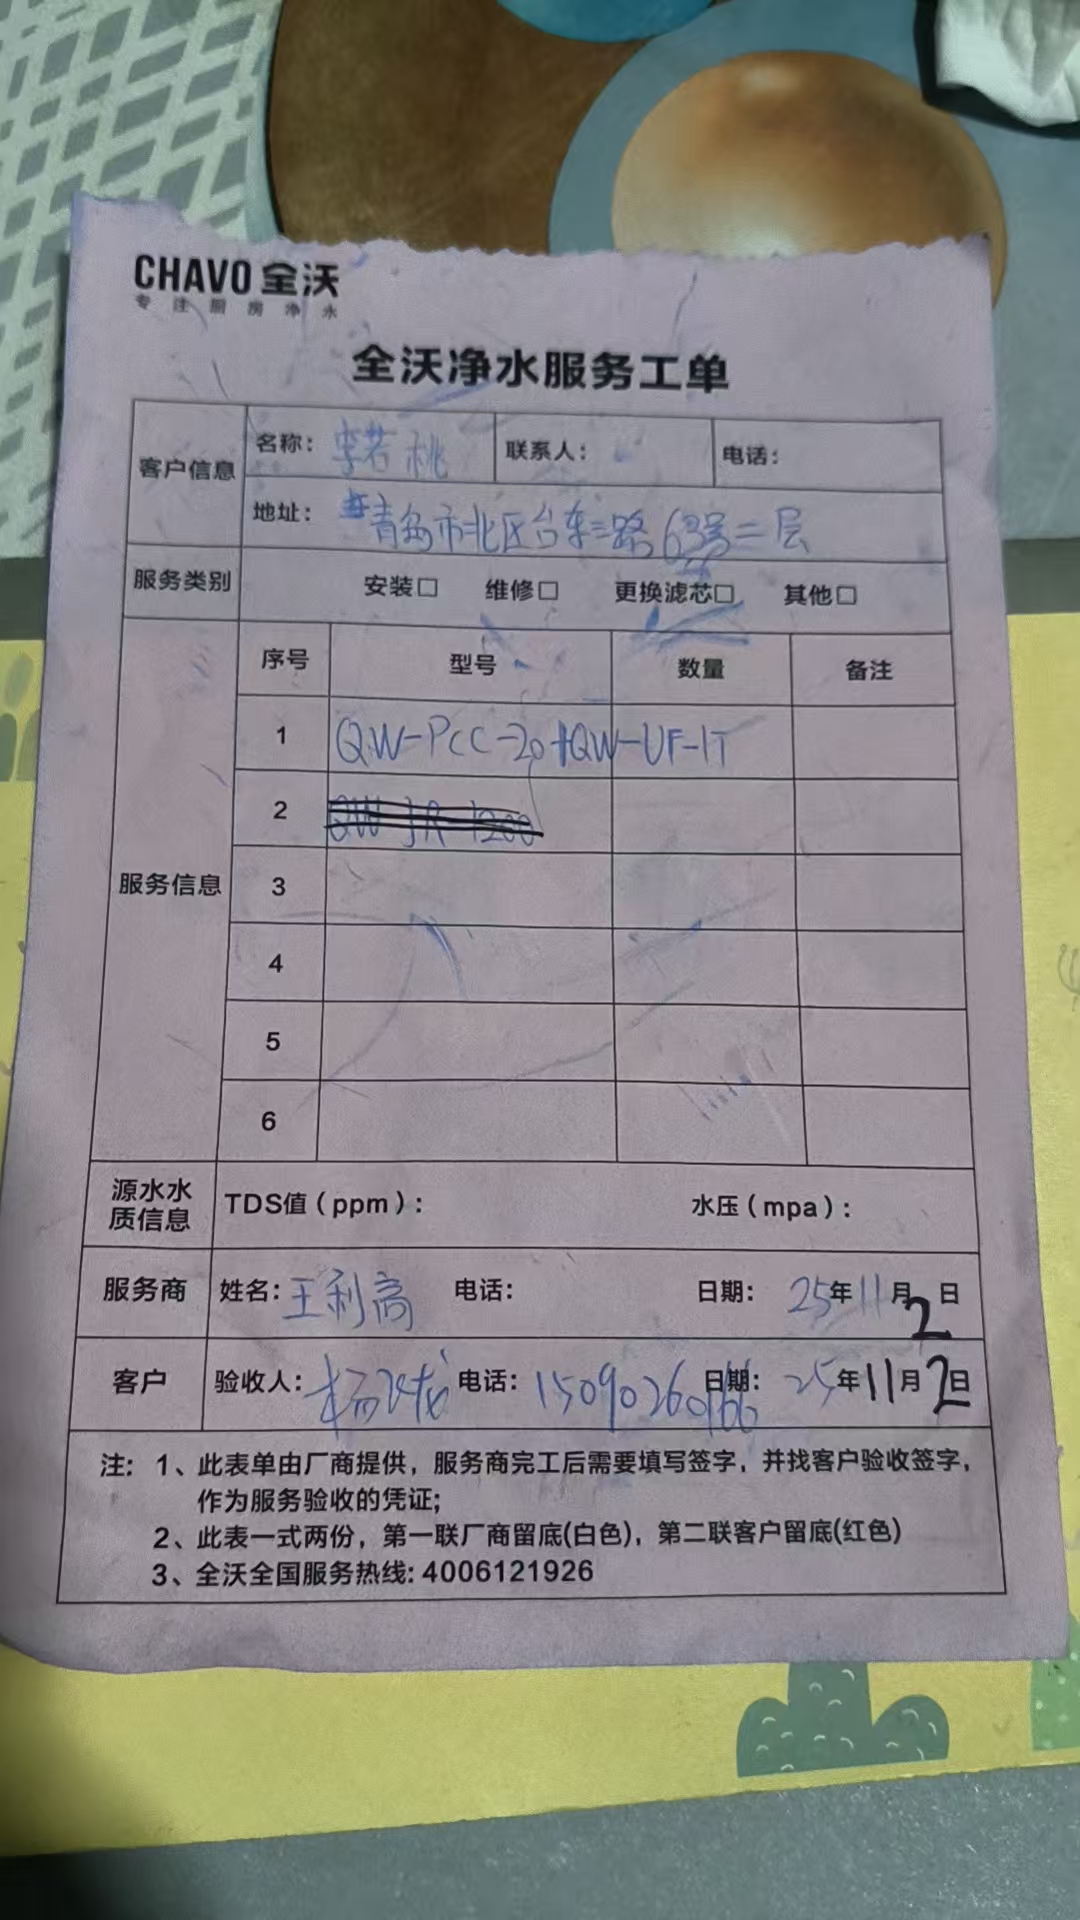 CHAVO 全沃
专注厨房净水
全沃净水服务工单
客户信息 名称：李若桃 联系人： 电话：
地址：青岛市北区台东三路63号二层
服务类别 安装□ 维修□ 更换滤芯□ 其他□
服务信息 序号 型号 数量 备注
1 QW-PCC-20+QW-UF-1T
2 QW-JR-1200
3
4
5
6
源水水质信息 TDS值（ppm）： 水压（mpa）：
服务商 姓名：王利高 电话： 日期：25年11月2日
客户 验收人：杨 电话：15090260166 日期：25年11月2日
注：1、此表单由厂商提供，服务商完工后需要填写签字，并找客户验收签字，
作为服务验收的凭证；
2、此表一式两份，第一联厂商留底(白色)，第二联客户留底(红色)
3、全沃全国服务热线：4006121926